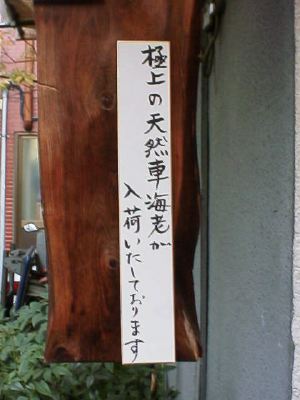 極上の天然車海老が
入荷いたしております